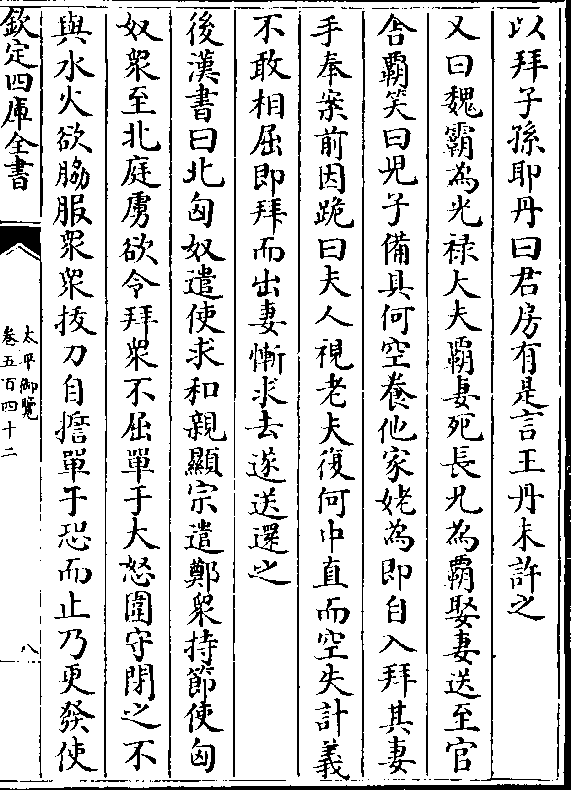 以拜子孫耶丹曰君房有是言王丹未許之
又曰魏霸為光祿大夫霸妻死長兄為霸娶妻送至官
舎霸笑曰兒子備具何空養他家姥為即自入拜其妻
手奉案前因跪曰夫人視老夫復何中直而空失計義
不敢相屈即拜而出妻慚求去遂送還之
後漢書曰北匈奴遣使求和親顯宗遣鄭衆持節使匈
奴衆至北庭虜欲令拜衆不屈單于大怒圍守閉之不
與水火欲脇服衆衆拔刀自擔單于恐而止乃更發使
欽定四庫全書
太平御覽
卷五百四十二
八